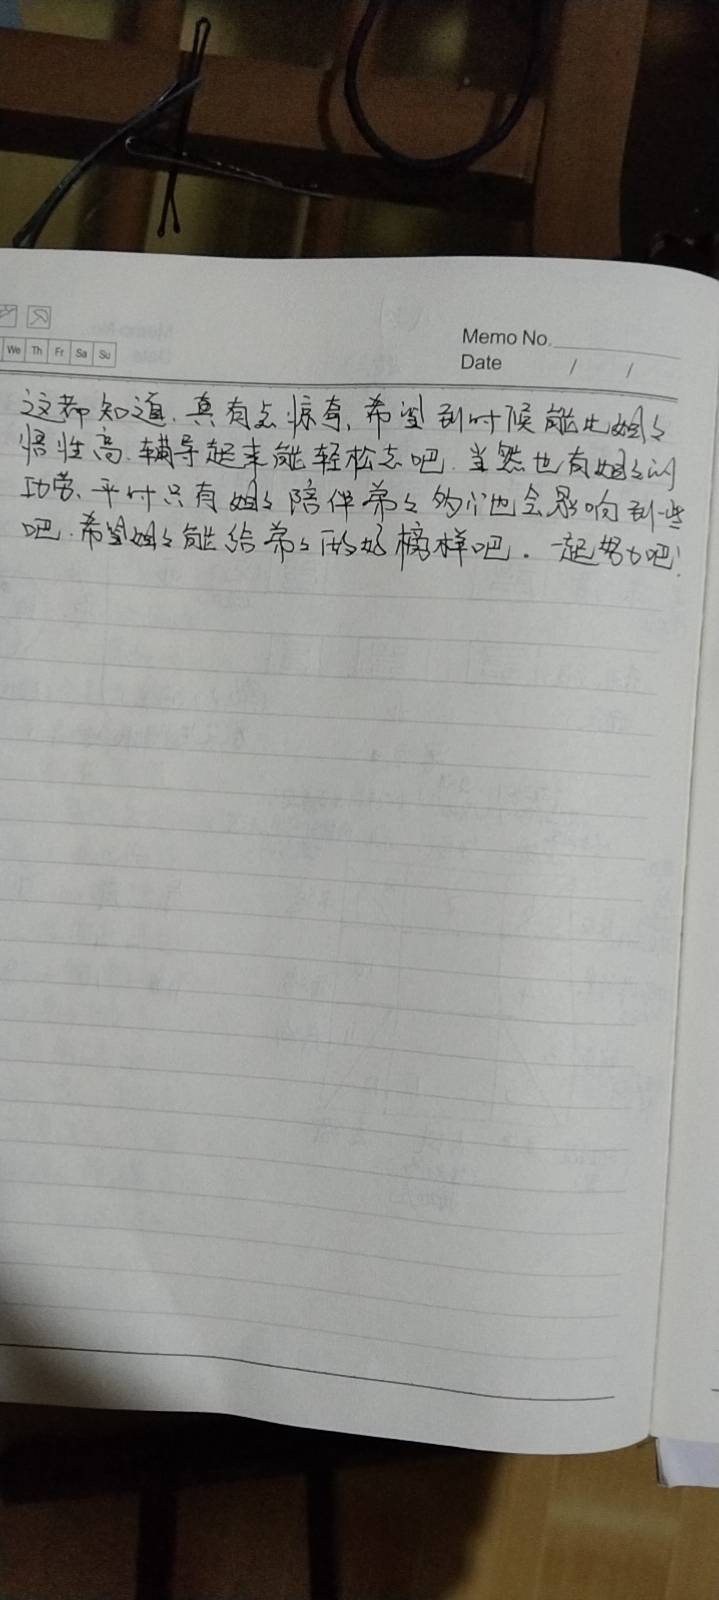 We Th Fr Sa Su
Memo No.
Date / /
这都知道.真有点惊奇,希望到时候能比姐々
悟性高.辅导起来能轻松点吧.当然也有姐々的
功劳.平时只有姐々陪伴弟々的,也会影响到些
吧.希望姐々能给弟々好榜样吧.一起努力吧!